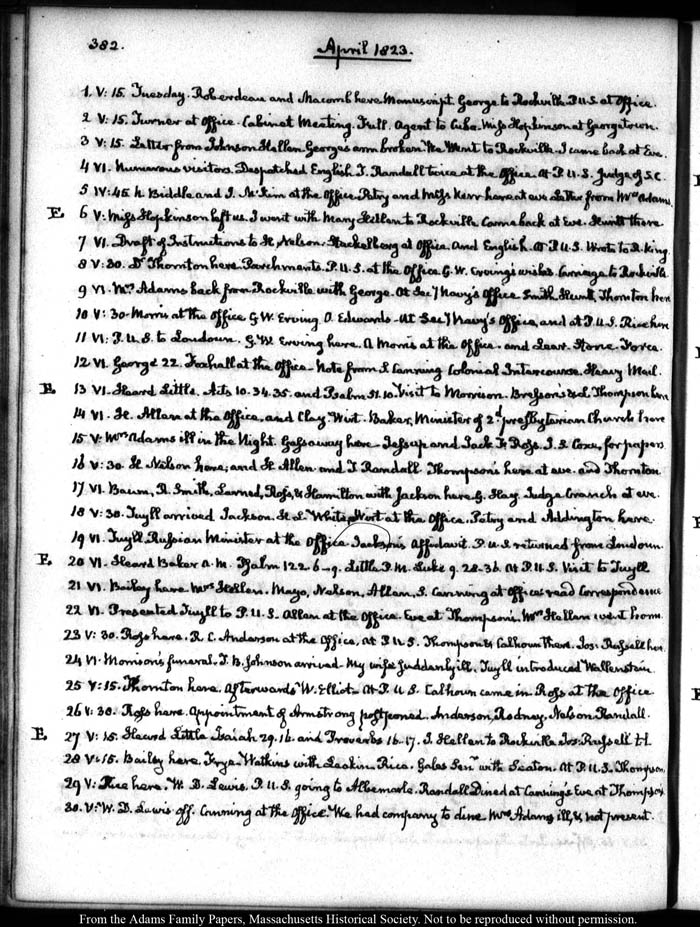 382.
April 1823.
1. V: 15. Tuesday. Roberdeau and Macomb here Manuscript. George to Rockville. P.U.S. at Office.
2 V: 15. Turner at Office. Cabinet Meeting. Full. Agent to Cuba. Miss Hopkinson at Georgetown.
3 V: 15. Letter from Johnson Hellen. George's arm broken. We Went to Rockville. I came back at Eve.
4 VI. Numerous visitors. Despatched English. T. Randall twice at the Office. At P.U.S. Judge of S.C.
5 IV: 45. N. Biddle and I. McKim at the Office. Petry and Miss Kerr here at eve. Letter from Mrs Adams.
E. 6 V: Miss Hopkinson left us. I went with Mary Hellen to Rockville. Came back at Eve. Hunt there
7 VI. Draft of Instructions to H. Nelson. Stackelberg at Office. And English. At P.U.S. Wrote to R. King.
8 V: 30. Dr Thornton here Parchments. P.U.S. at the Office G. W. Erving's wishes. Carriage to Rockville
9 VI. Mrs Adams back from Rockville with George. At Secy Navy's Office. Smith. Hunt, Thornton here
10 V: 30. Morris at the Office. G. W. Erving. D. Edwards. At Secy Navy's Office, and at P.U.S. Rice here
11 VI: P.U.S. to Loudoun. G. W. Erving here. A Morris at the Office. and Lear. Stone. Force.
12 VI. George 22. Foxhall at the Office. Note from S Canning Colonial Intercourse. Heavy Mail.
E. 13 VI. Heard Little. Acts 10. 34. 35. and Psalm 51. 10. Visit to Morrison. Bresson's &c. Thompson here
14 VI. H. Allen at the Office, and Clay. Wirt. Baker, Minister of 2d presbyterian Church here
15 V: Mrs Adams ill in the Night. Gassaway here. Jessup and Jack T. Ross. I. S. Coxe, for papers
16 V: 30. H. Nelson here; and H. Allen and T. Randall. Thompson's here at eve. and Thornton
17 VI. Baum, R. Smith, Larned, Ross, & Hamilton with Jackson here. G. Hay. Judge Cranch at eve.
18 V: 30. Tuyll arrived. Jackson. H. L. White, Wirt at the Office. Petry and Addington here.
19 VI. Tuyll Russian Minister at the Office. Jackson's Affidavit. P.U.S. returned from Loudoun.
E. 20 VI. Heard Baker A.M. Psalm 122. 6-9. Little P.M. Luke 9. 28-36. At P.U.S. Visit to Tuyll
21 VI. Bailey here. Mrs Hellen. Mayo, Nelson, Allen, S. Canning at Office: read Correspondence
22 VI. Presented Tuyll to P.U.S. Allen at the Office. Eve at Thompson's. Mrs Hellen went home.
23 V: 30. Ross here. R. C. Anderson at the Office, at P.U.S. Thompson & Calhoun there. Jos: Russell here.
24 VI. Morrison's funeral. T. B. Johnson arrived. My wife suddenly ill. Tuyll introduced Wallenstein
25 V: 15. Thornton here. Afterwards W. Elliot. At P.U.S. Calhoun came in. Ross at the Office
26 V: 30. Ross here. Appointment of Armstrong postponed. Anderson, Rodney, Nelson Randall.
E. 27 V: 15. Heard Little Isaiah 29. 16. and Proverbs 16. 17. J. Hellen to Rockville. Jos: Russell &c.
28 V: 15. Bailey here. Frye. Watkins with Laskin. Rice. Gales Senr with Seaton. At P.U.S. Thompson,
29 V: Rice here. W. D. Lewis. P.U.S. going to Albemarle. Randall Dined at Canning's Eve at Thompson's
30. V: W. D. Lewis off. Canning at the Office. We had company to dine. Mrs Adams ill, & not present.
From the Adams Family Papers, Massachusetts Historical Society. Not to be reproduced without permission.